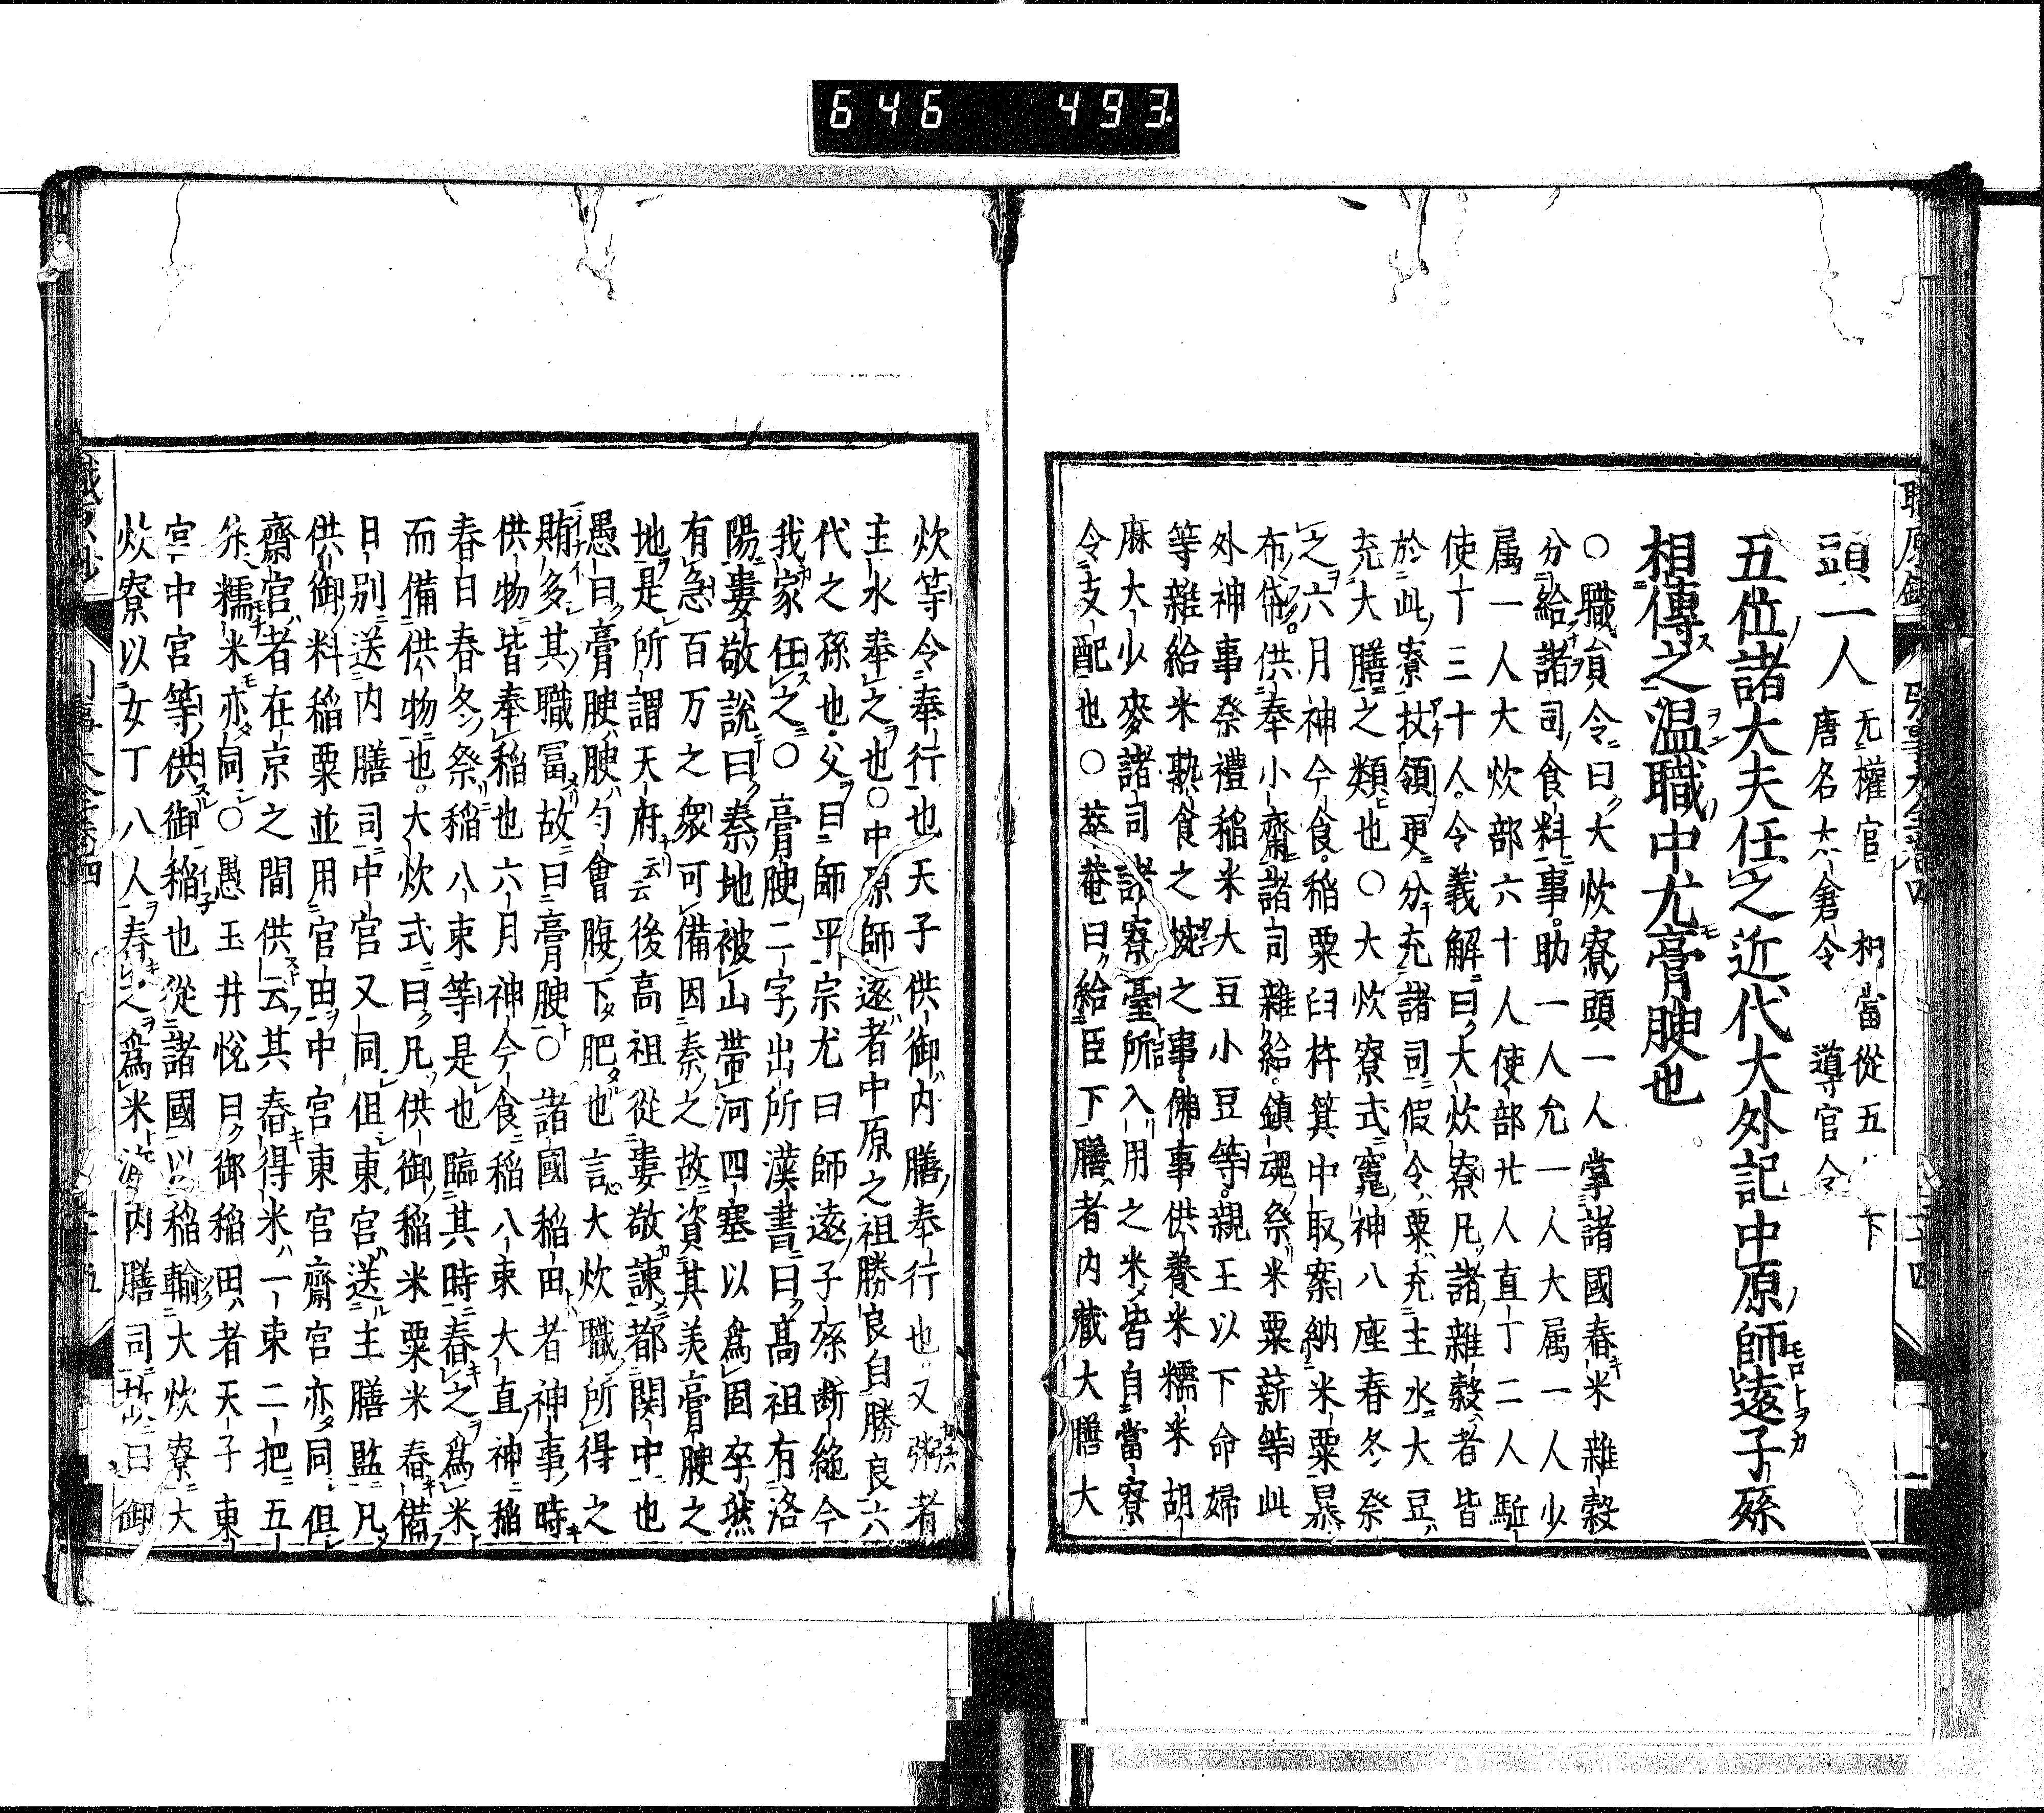 646 493
頭一人 无權官 相當從五 下
唐名大倉令 導官令
五位諸大夫任之近代大外記中原師遠子孫
相傳之温職中尤膏腴也
○職員令曰大炊寮頭一人掌諸國舂米雜穀
分給諸司食料事助一人允一人大属一人少
属一人大炊部六十人使部廿人直丁二人駈
使丁三十人令義解曰大炊寮凡諸雜穀者皆
於此寮扙領更分充諸司假令粟充主水大豆
充大膳之類也○大炊寮式竈神八座春冬祭
之六月神今食稲粟臼杵箕中取案納米粟暴
布袋供奉小齋諸司雜給鎮魂祭米粟薪等此
外神事祭禮稲米大豆小豆等親王以下命婦
等雜給米熟食之埦之事佛事供養米糯米胡
麻大少麥諸司諸寮臺所入用之米皆自當寮
令支配也○萃菴曰給臣下膳者内蔵大膳大
炊等令奉行也天子供御内膳奉行也又粥者
主水奉之也○中原師遠者中原之祖勝良自勝良六
代之孫也父曰師平宗尤曰師遠子孫断絶今
我家任之○膏腴二字出所漢書曰高祖有洛
陽婁敬説曰秦地被山帶河四塞以爲固卒然
有急百万之衆可備因秦之故資其美膏腴之
地是所謂天府云云後高祖從婁敬諫都関中也
愚曰膏腴腴勺會腹下肥也言大炊職所得之
賄多其職冨故曰膏腴○諸國稲田者神事時
供物皆奉稲也六月神今食稲八束大直神稲
春日春冬祭稲八束等是也臨其時舂之爲米
而備供物也大炊式曰凡供御稲米粟米舂備
日別送内膳司中官又同但東宮送主膳監凡
供御料稲粟並用官由中宮東宮齋宮亦同但
齋宮者在京之間供云其舂得米一束二把五
糯米亦同○愚玉井悦曰御稲田者天子東
宮中宮等供御稲也從諸國以稲輸大炊寮大
炊寮以女丁八人舂之爲米 内膳司故曰御